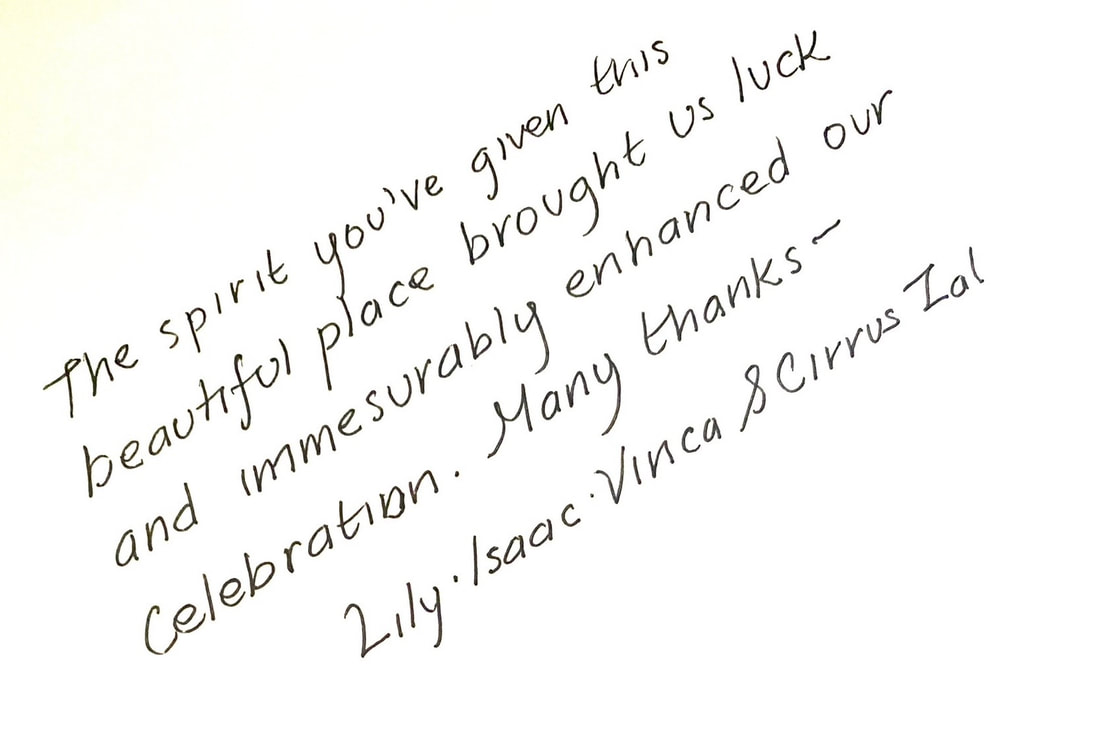 The spirit you've given this
beautiful place brought us luck
and immesurably enhanced our
Celebration. Many thanks ~
Lily · Isaac · Vinca & Cirrus Zal